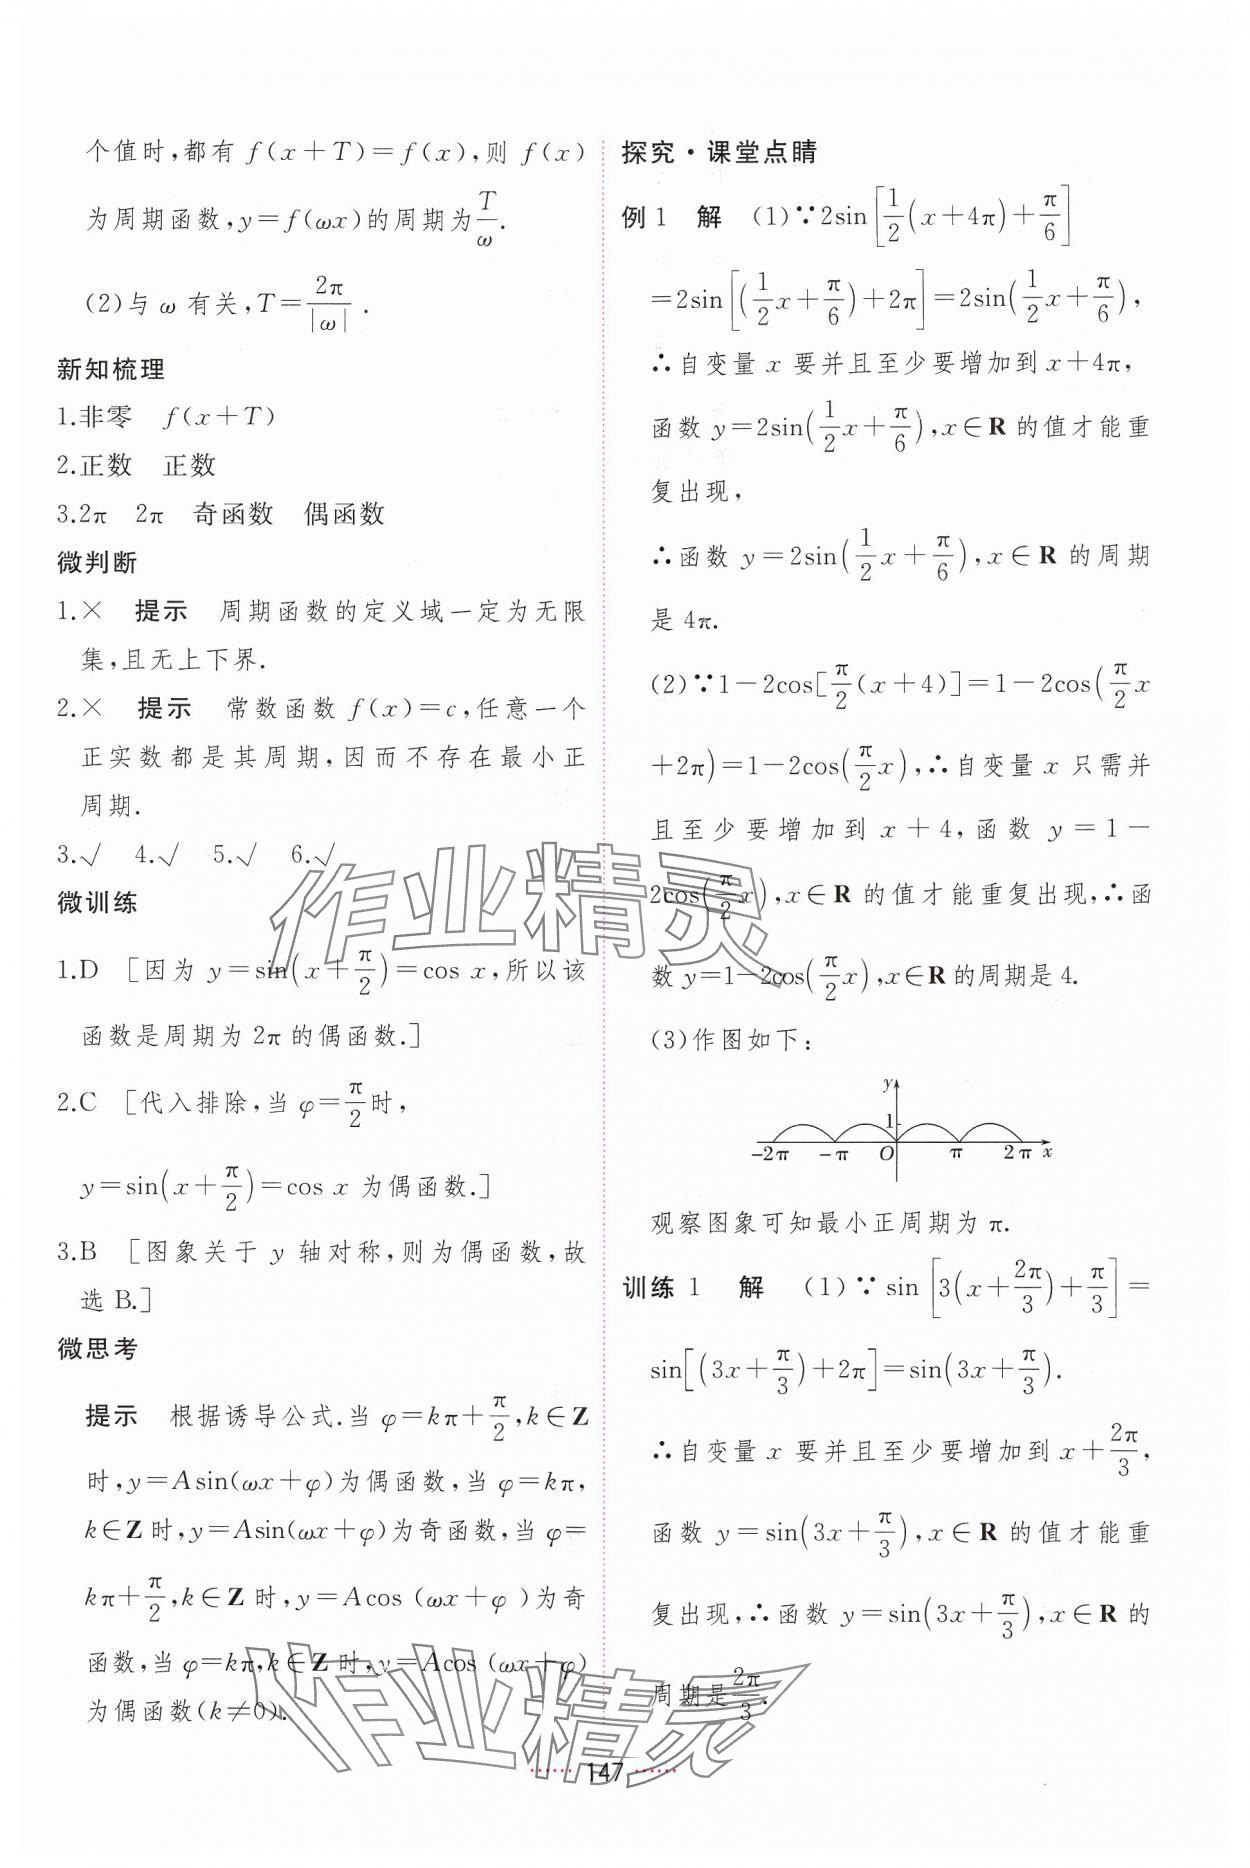 个值时,都有 f(x+T)=f(x),则 f(x)
为周期函数,y=f(ωx)的周期为T/ω.
(2)与 ω 有关,T=2π/|ω|.
新知梳理
1.非零 f(x+T)
2.正数 正数
3.2π 2π 奇函数 偶函数
微判断
1.× 提示 周期函数的定义域一定为无限
集,且无上下界.
2.× 提示 常数函数 f(x)=c,任意一个
正实数都是其周期,因而不存在最小正
周期.
3.√ 4.√ 5.√ 6.√
微训练
1.D [因为 y=sin(x+π/2)=cos x,所以该
函数是周期为 2π 的偶函数.]
2.C [代入排除,当 φ=π/2时,
y=sin(x+π/2)=cos x 为偶函数.]
3.B [图象关于 y 轴对称,则为偶函数,故
选 B.]
微思考
提示 根据诱导公式.当 φ=kπ+π/2,k∈Z
时,y=Asin(ωx+φ)为偶函数,当 φ=kπ,
k∈Z 时,y=Asin(ωx+φ)为奇函数,当 φ=
kπ+π/2,k∈Z 时,y=Acos (ωx+φ )为奇
函数,当 φ=kπ,k∈Z 时,y=Acos (ωx+φ)
为偶函数(k≠0).
探究·课堂点睛
例 1 解 (1)∵2sin[1/2(x+4π)+π/6]
=2sin[(1/2x+π/6)+2π]=2sin(1/2x+π/6),
∴自变量 x 要并且至少要增加到 x+4π,
函数 y=2sin(1/2x+π/6),x∈R 的值才能重
复出现,
∴函数 y=2sin(1/2x+π/6),x∈R 的周期
是 4π.
(2)∵1-2cos[π/2(x+4)]=1-2cos(π/2x
+2π)=1-2cos(π/2x),∴自变量 x 只需并
且至少要增加到 x+4,函数 y=1-
2cos(π/2x),x∈R 的值才能重复出现,∴函
数 y=1-2cos(π/2x),x∈R 的周期是 4.
(3)作图如下:
y
1
-2π -π O π 2π x
观察图象可知最小正周期为 π.
训练 1 解 (1)∵sin [3(x+2π/3)+π/3]=
sin[(3x+π/3)+2π]=sin(3x+π/3).
∴自变量 x 要并且至少要增加到 x+2π/3,
函数 y=sin(3x+π/3),x∈R 的值才能重
复出现,∴函数 y=sin(3x+π/3),x∈R 的
周期是2π/3.
作业精灵
作业精灵
147